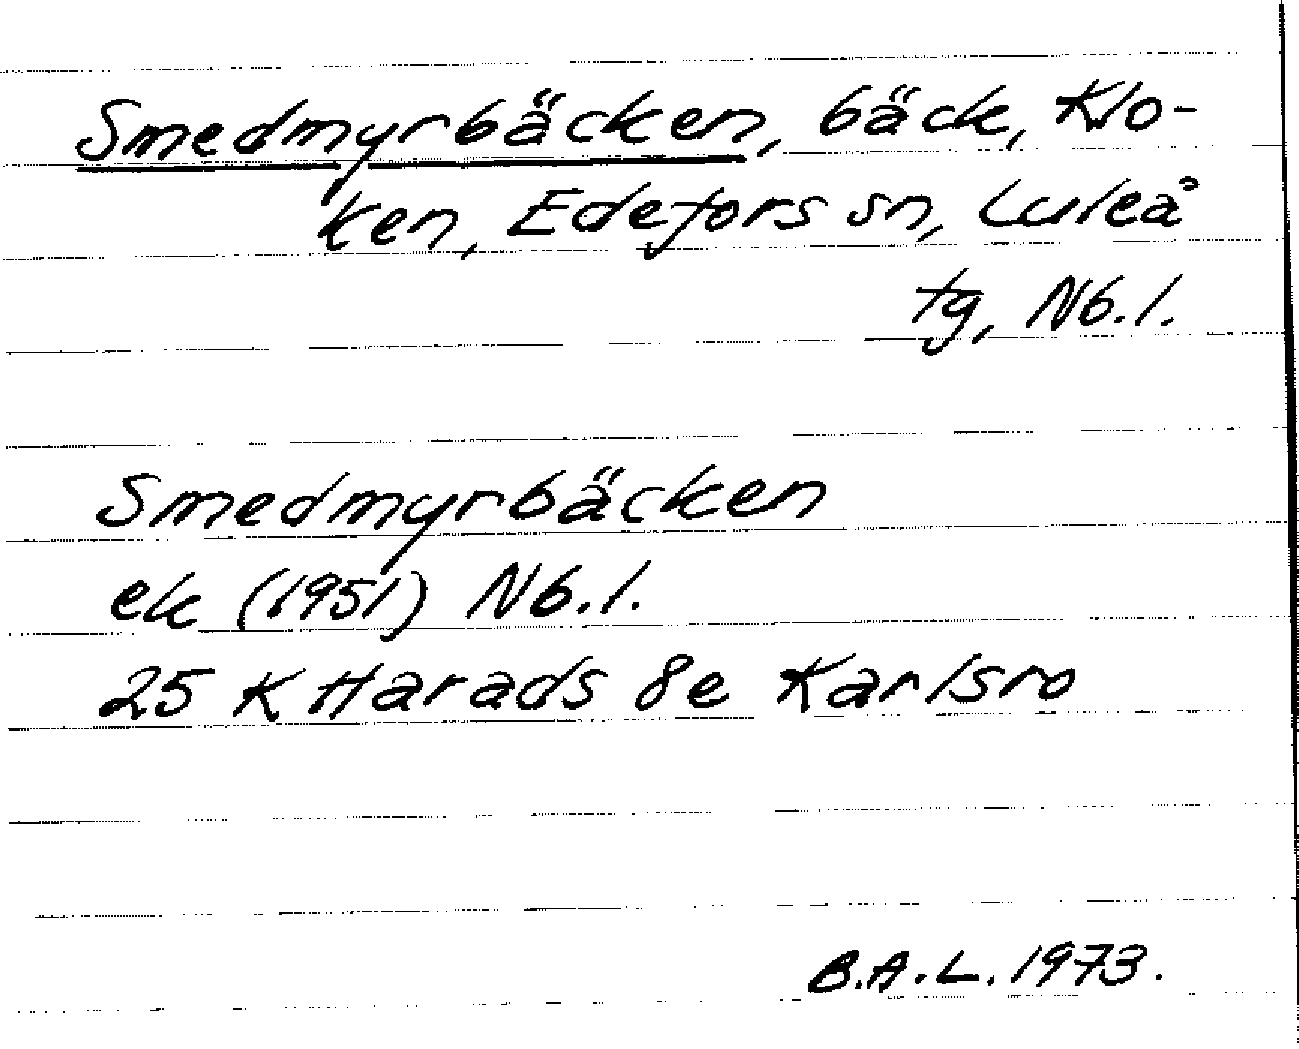 Smedmyrbäcken, bäck, Klo-
ken, Edefors sn, Luleå
tg, Nb.l.
Smedmyrbäcken
ek (1951) Nb.l.
25 K Harads 8e Karlsro
B.A.L. 1973.